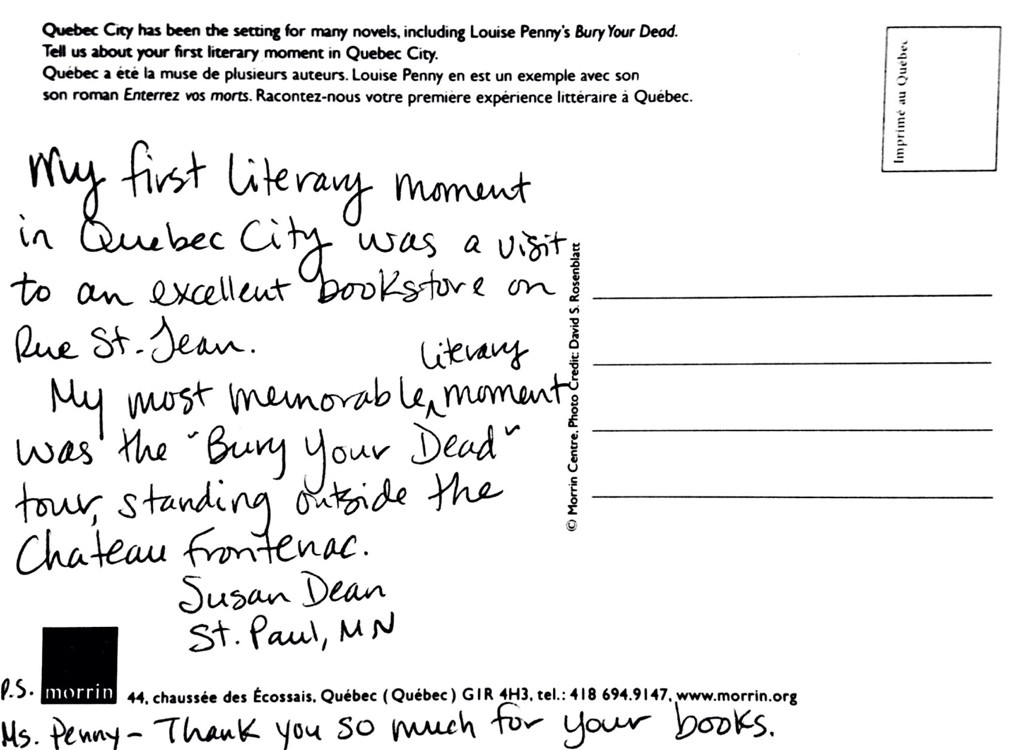 Quebec City has been the setting for many novels, including Louise Penny's Bury Your Dead.
Tell us about your first literary moment in Quebec City.
Québec a été la muse de plusieurs auteurs. Louise Penny en est un exemple avec son
son roman Enterrez vos morts. Racontez-nous votre première expérience littéraire à Québec.
Imprimé au Québec
My first literary moment
in Quebec City was a visit
to an excellent bookstore on
Rue St-Jean.
literary
My most memorable ^ moment
was the "Bury Your Dead"
tour, standing outside the
Chateau Frontenac.
Susan Dean
St. Paul, MN
© Morrin Centre, Photo Credit: David S. Rosenblatt
P.S. morrin 44, chaussée des Écossais, Québec (Québec) G1R 4H3, tel.: 418 694.9147, www.morrin.org
Ms. Penny - Thank you so much for your books.